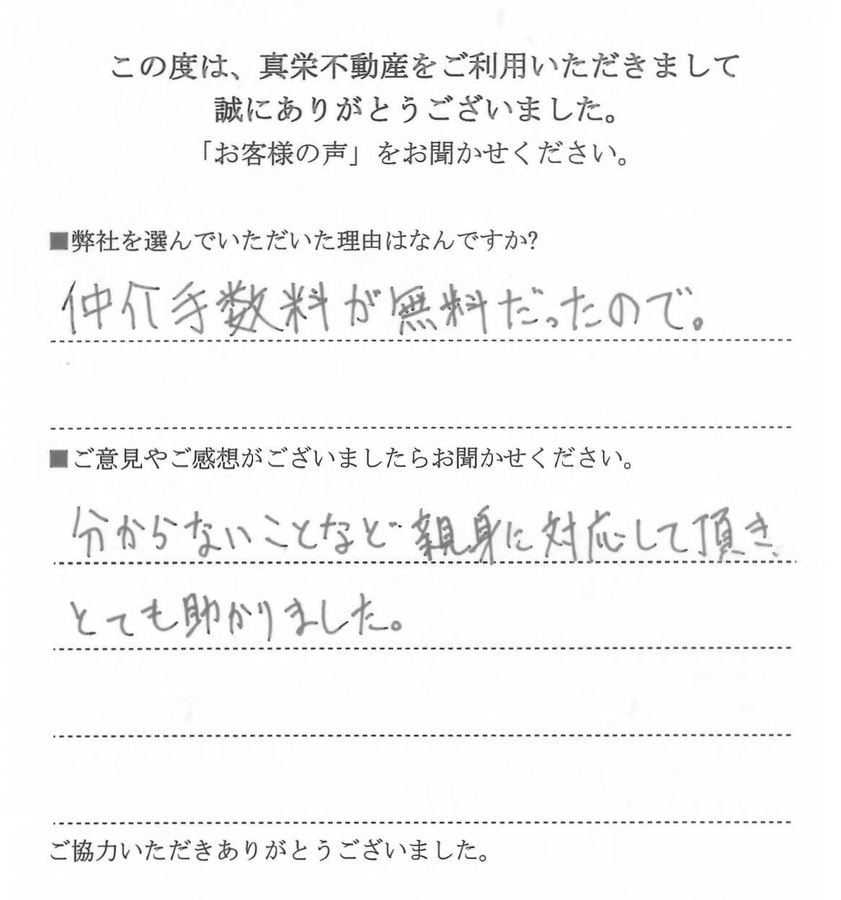 この度は、真栄不動産をご利用いただきまして
誠にありがとうございました。
「お客様の声」をお聞かせください。
■弊社を選んでいただいた理由はなんですか?
仲介手数料が無料だったので。
■ご意見やご感想がございましたらお聞かせください。
分からないことなど親身に対応して頂き
とても助かりました。
ご協力いただきありがとうございました。